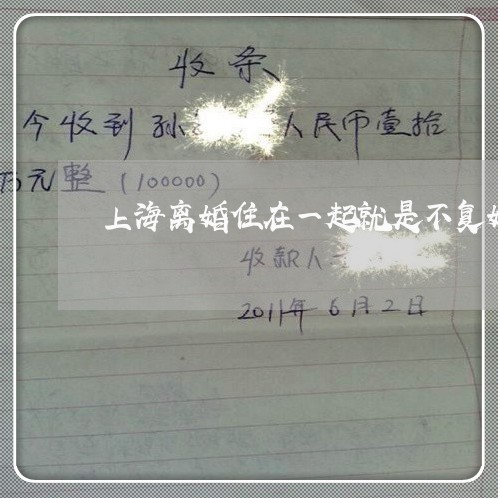 收条
今收到孙 人民币壹拾
万元整(100000)
上海离婚住在一起就是不复婚
收款人
2011年6月2日